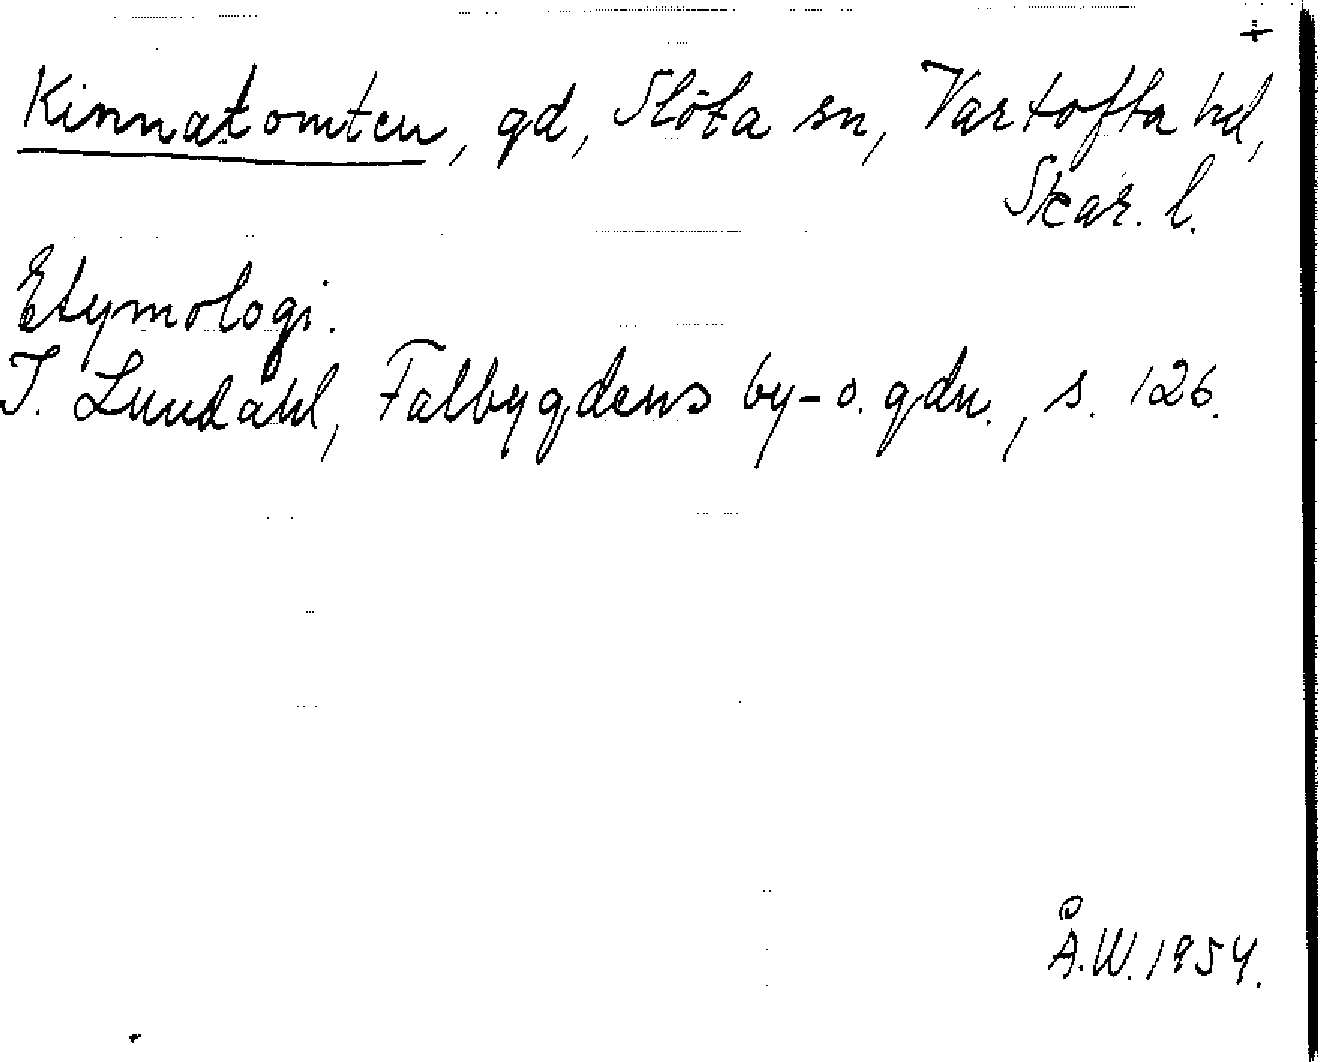 +
Kinnatomten, gd, Slöta sn, Vartofta hd,
Skar. l.
Etymologi.
I. Lundahl, Falbygdens by- o. gdn., s. 126.
Å.W. 1954.